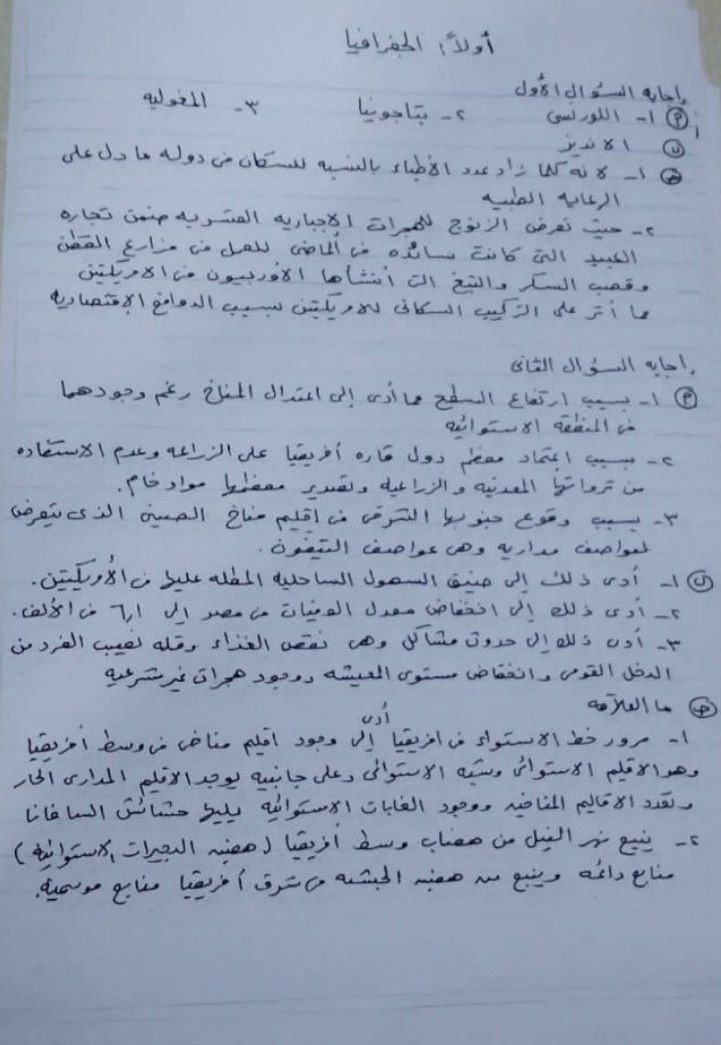 أولاً: الجغرافيا
إجابه السؤال الأول
أ ١- اللورنسى ٢- بتاجونيا ٣- المغوليه
ب الانديز
ج ١- لانه كلما زاد عدد الأطباء بالنسبه للسكان فى دوله ما دل على
الرعايه الطبيه
٢- حيث تعرض الزنوج للهجرات الإجباريه القسريه ضمن تجاره
العبيد التى كانت سائده فى الماضى للعمل فى مزارع القطن
وقصب السكر والتبغ التى أنشأها الأوربيون فى الامريكتين
مما أثر على التركيب السكانى للامريكتين بسبب الدوافع الإقتصاديه
إجابه السؤال الثانى
أ ١- بسبب ارتفاع السطح مما أدى إلى اعتدال المناخ رغم وجودهما
فى المنطقه الاستوائيه
٢- بسبب اعتماد معظم دول قاره أفريقيا على الزراعه وعدم الاستفاده
من ثرواتها المعدنيه والزراعيه وتصدير معظمها مواد خام.
٣- بسبب وقوع جنوبها الشرقى فى إقليم مناخ الصينى الذى يتعرض
لعواصف مداريه وهى عواصف التيفون.
ب ١- أدى ذلك إلى ضيق السهول الساحليه المطله عليها فى الأمريكتين.
٢- أدى ذلك إلى انخفاض معدل الوفيات فى مصر إلى ٦٫١ فى الألف.
٣- أدى ذلك إلى حدوث مشاكل وهى نقص الغذاء وقله نصيب الفرد من
الدخل القومى وانخفاض مستوى المعيشه ووجود هجرات غير شرعيه
ج ما العلاقه
١- مرور خط الاستواء فى افريقيا أدى إلى وجود اقليم مناخى فى وسط أفريقيا
وهو الاقليم الاستوائى وشبه الاستوائى وعلى جانبيه يوجد الاقليم المدارى الحار
وتعدد الاقاليم المناخيه ووجود الغابات الاستوائيه يليها حشائش السافانا
٢- ينبع نهر النيل من هضاب وسط أفريقيا (هضبه البحيرات الاستوائيه)
منابع دائمه وينبع من هضبه الحبشه فى شرق أفريقيا منابع موسميه.